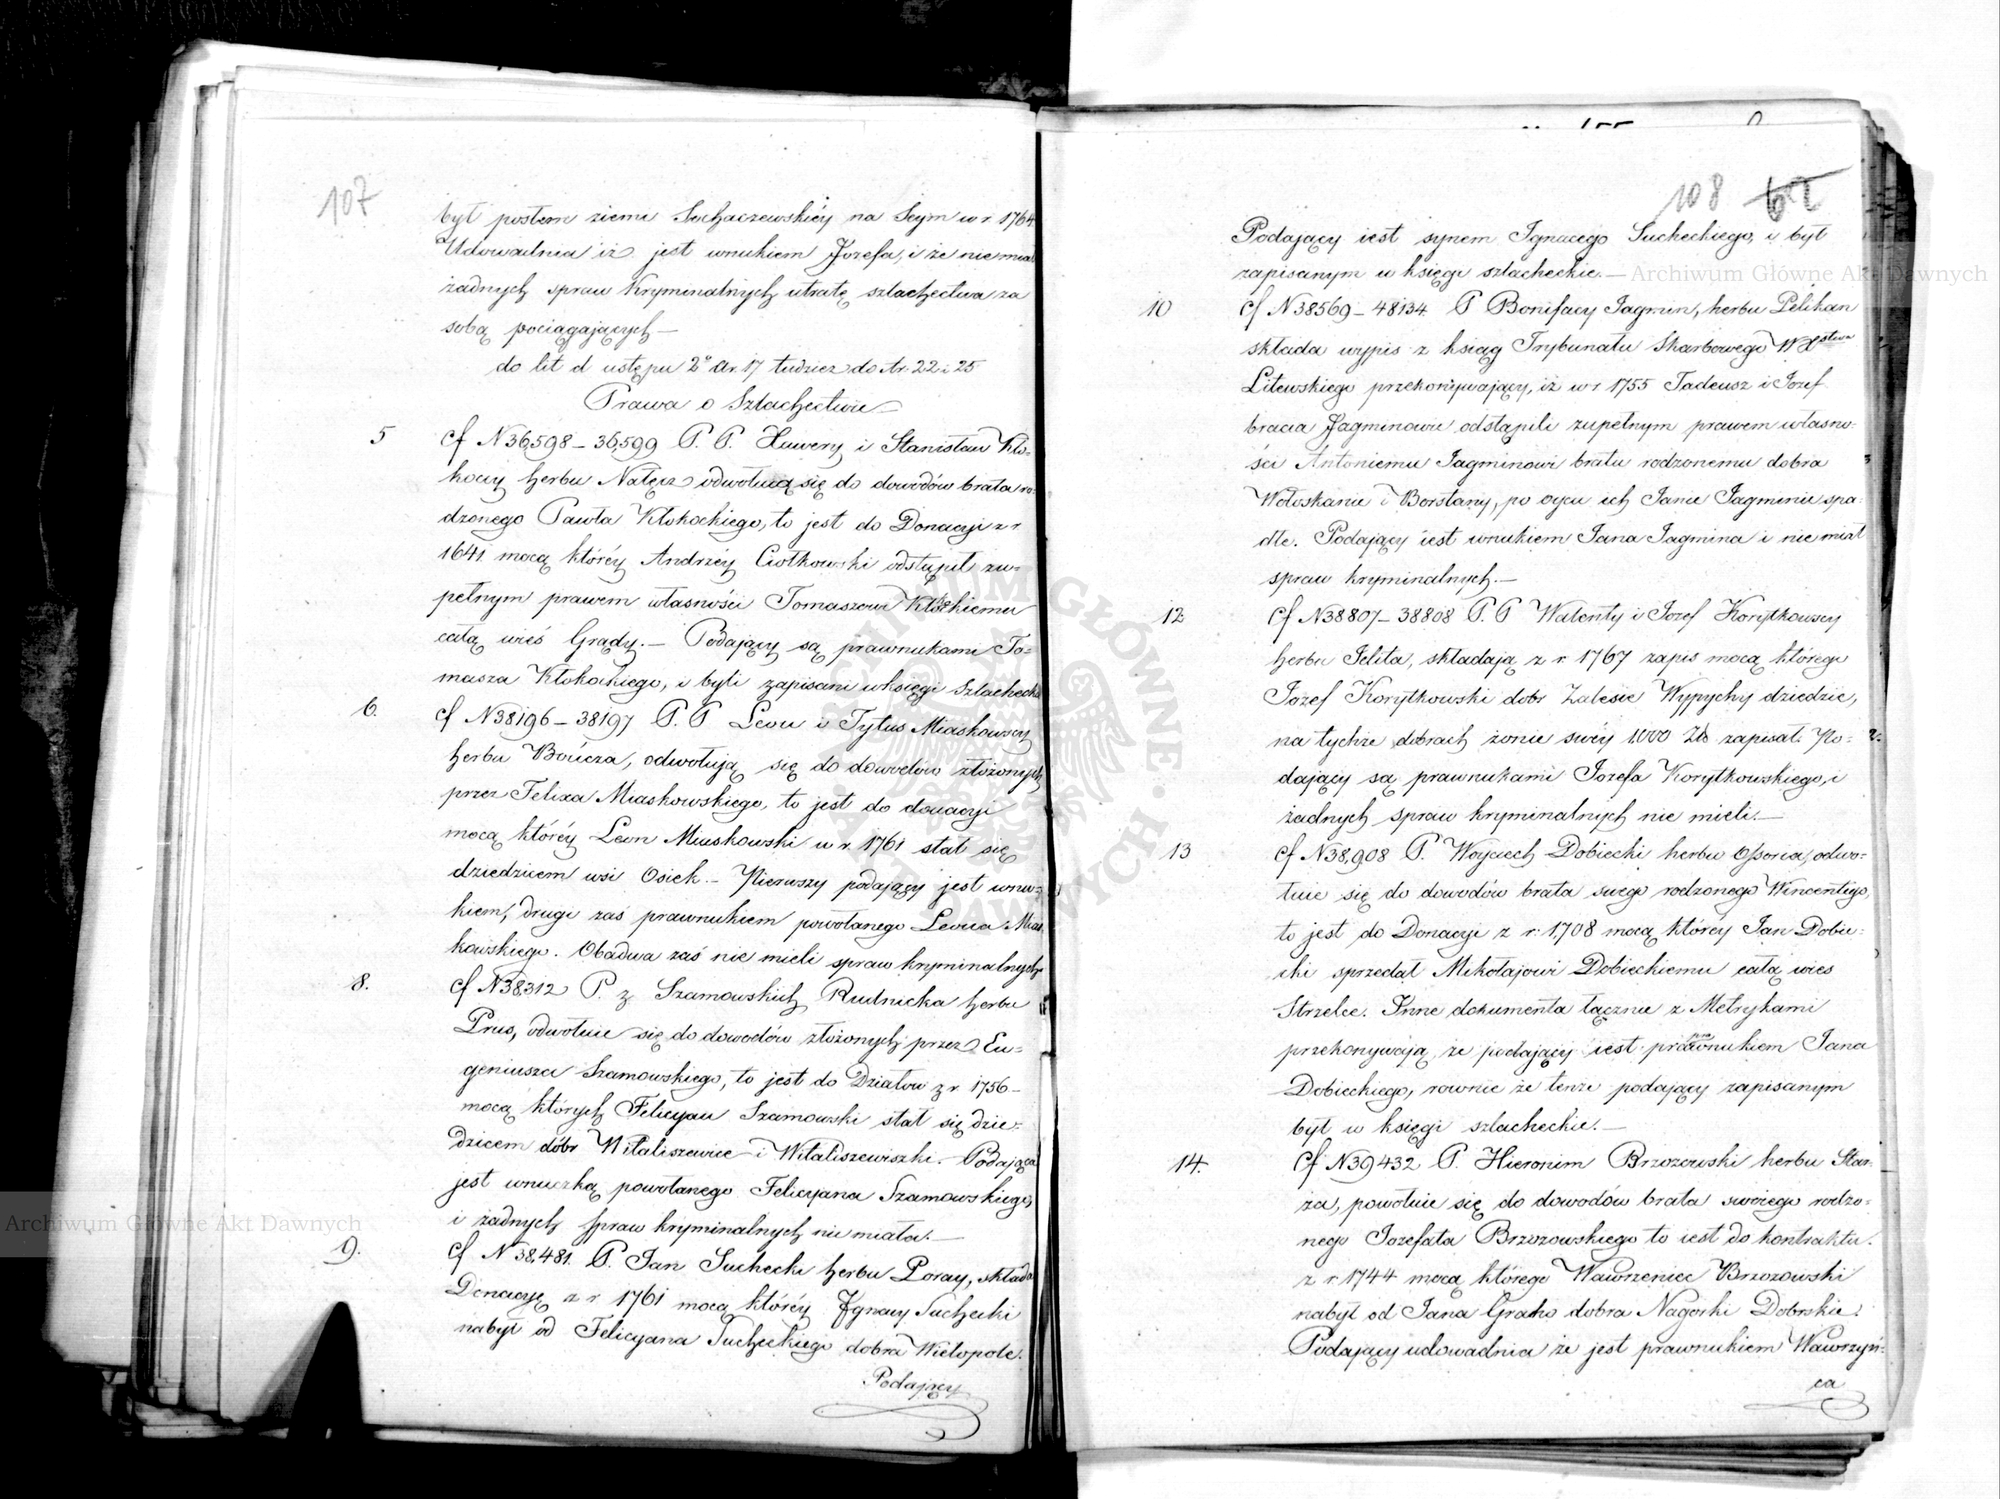 107
był posłem ziemi Sochaczewskiéy na Seym w r. 1764.
Udowadnia iż jest wnukiem Jozefa, i że nie miał
żadnych spraw Kryminalnych utratę szlachectwa za
sobą pociągających —
do lit d ustępu 2º ar. 17 tudzież do Ar. 22 i 25
Prawa o Szlachectwie —
5 cf N 36,598 – 36,599 P. P. Xawery i Stanisław Kło-
koccy herbu Nałęcz odwołują się do dowodów brata ro-
dzonego Pawła Kłokockiego, to jest do Donacyi z r.
1641 mocą któréy Andrzéy Ciołkowski odstąpił zu-
pełnym prawem własności Tomaszowi Kłokiemu
całą wieś Grądy. — Podający są prawnukami To-
masza Kłokockiego, i byli zapisani w księgi Szlacheckie
6. cf N 38196 – 38197 P. P. Leon i Tytus Miaskowscy
herbu Bończa, odwołują się do dowodów złożonych
przez Felixa Miaskowskiego, to jest do donacyi
mocą któréy Leon Miaskowski w r. 1761 stał się
dziedzicem wsi Osiek. — Pierwszy podający jest wnu-
kiem, drugi zaś prawnukiem powołanego Leona Mias
kowskiego. Obadwa zaś nie mieli spraw kryminalnych
8. cf N 38312 P. z Szamowskich Rudnicka herbu
Prus, odwołuie się do dowodów złożonych przez Eu-
geniusza Szamowskiego, to jest do Działów z r. 1756 —
mocą których Felicyan Szamowski stał się dzie-
dzicem dóbr Witaliszewice i Witaliszewiszki. — Podająca
jest wnuczką powołanego Felicyana Szamowskiego,
i żadnych spraw kryminalnych nie miała. —
9. cf N 38,481. P. Jan Suchecki herbu Poray, składa
Donacyę z r 1761 mocą któréy Ignacy Suchecki
nabył od Felicyana Sucheckiego dobra Wielopole.
Podający
108
Podający iest synem Ignacego Sucheckiego, i był
zapisanym w księgi szlacheckie. —
10 cf N 38569 – 48134. P Bonifacy Jagmin, herbu Pelikan
składa wypis z ksiąg Trybunału Skarbowego W Xstwa
Litewskiego przekonywający, iż w r. 1755 Tadeusz i Jozef
bracia Jagminowie odstąpili zupełnym prawem własno-
ści Antoniemu Jagminowi bratu rodzonemu dobra
Wołoskanie i Borstany, po oycu ich Janie Jagminie spa-
dłe. Podający iest wnukiem Jana Jagmina i nie miał
spraw kryminalnych. —
12 cf N 38807 – 38808 P. P Walenty i Jozef Korytkowscy
herbu Jelita, składają z r. 1767 zapis mocą którego
Jozef Korytkowski dobr Zalesie Wypychy dziedzic,
na tychże dobrach żonie swéy 1.000 Zł zapisał. Po-
dający są prawnukami Jozefa Korytkowskiego, i
żadnych spraw kryminalnych nie mieli. —
13 cf N 38,908 P. Woyciech Dobiecki herbu Ossoria, odwo-
łuie się do dowodów brata swego rodzonego Wincentego,
to jest do Donacyi z r. 1,708 mocą któréy Jan Dobie-
cki sprzedał Mikołajowi Dobieckiemu całą wieś
Strzelce. Inne dokumenta łącznie z Metrykami
przekonywają, że podający iest praprawnukiem Jana
Dobieckiego, rownie że tenże podający zapisanym
był w księgi szlacheckie. —
14. cf N 39432 P. Hieronim Brzozowski herbu Star-
ża, powołuie się do dowodów brata swoiego rodzo-
nego Jozefata Brzozowskiego to iest do kontraktu
z r. 1744 mocą którego Wawrzeniec Brzozowski
nabył od Jana dobra Nagorki Dobrskie.
Podający udowadnia że jest prawnukiem Wawrzyń-
ca
Archiwum Główne Akt Dawnych
Archiwum Główne Akt Dawnych
ARCHIWUM GŁÓWNE AKT DAWNYCH